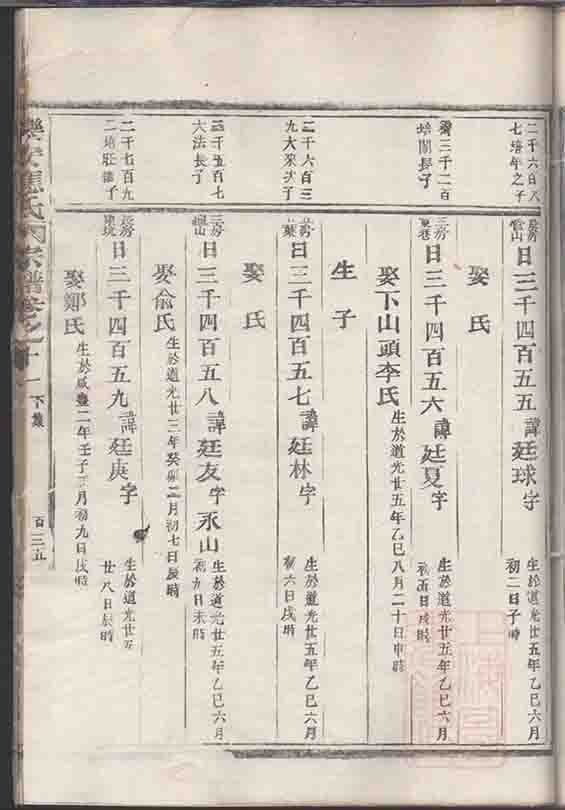 二千六百八
七培年之子
長房
日三千四百五五諱廷球字
生於道光廿五年乙巳六月
初二日子時
娶氏
三千二百
培開長子
三房
日三千四百五六諱廷夏字
生於道光廿五年乙巳六月
初五日戌時
娶下山頭李氏生於道光廿五年乙巳八月二十日申時
生子
二千六百三
九大來次子
日三千四百五七諱廷林字
生於道光廿五年乙巳六月
初六日戌時
娶氏
二千五百七
六法長子
三房
日三千四百五八諱廷友字永山
生於道光廿五年乙巳六月
初九日未時
娶俞氏生於道光廿三年癸卯二月初七日辰時
二千七百九
二培莊繼子
長房
日三千四百五九諱廷庚字
生於道光廿五
廿八日辰時
娶鄭氏生於咸豐二年壬子三月初九日戌時
樂安蔣氏宗譜卷之十一
下集
百三五